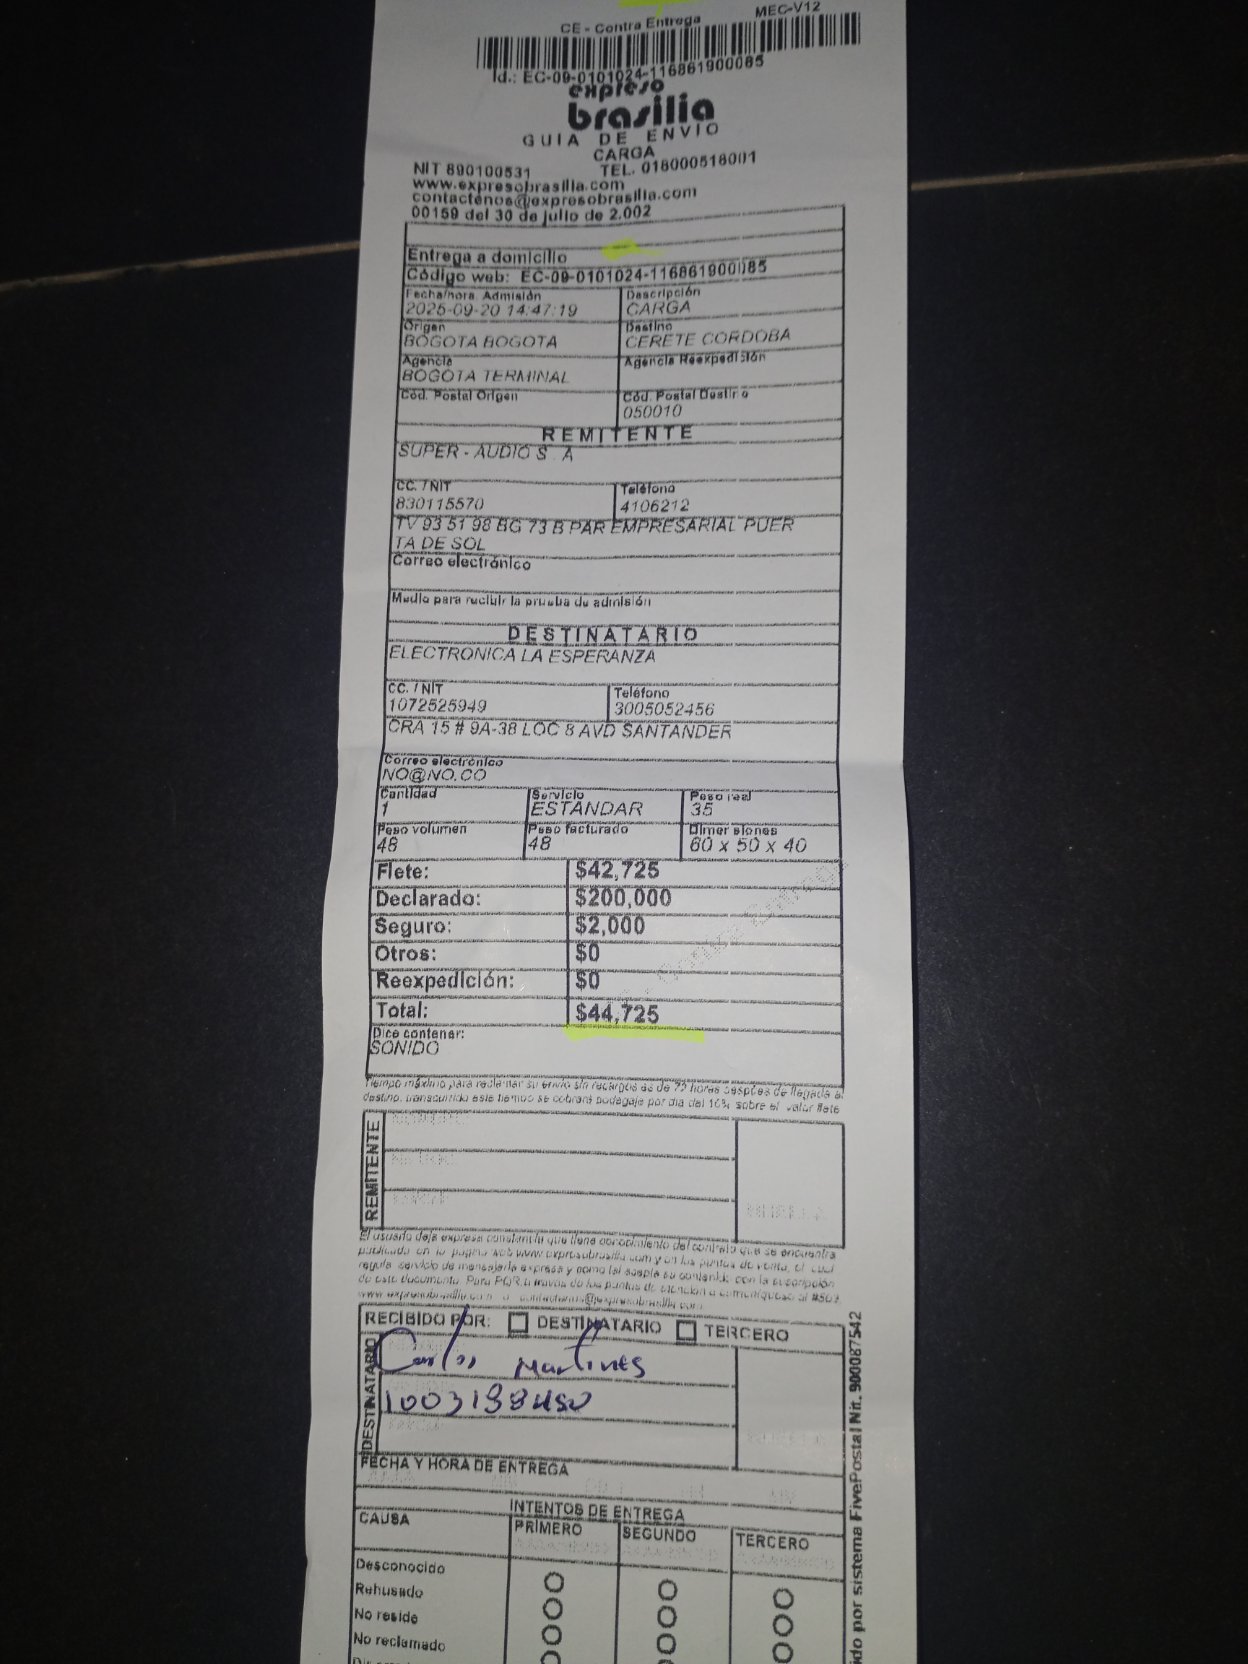 CE - Contra Entrega MEC-V12
Id.: EC-09-0101024-116861900085
expreso
brasilia
GUIA DE ENVIO
CARGA
NIT 890100531 TEL. 018000518001
www.expresobrasilia.com
contactenos@expresobrasilia.com
00159 del 30 de julio de 2.002
Entrega a domicilio
Código web: EC-09-0101024-116861900085
Fecha/hora Admisión Descripción
2025-09-20 14:47:19 CARGA
Origen Destino
BOGOTA BOGOTA CERETE CORDOBA
Agencia Agencia Reexpedición
BOGOTA TERMINAL
Cód. Postal Origen Cód. Postal Destino
050010
REMITENTE
SUPER - AUDIO S . A
CC. / NIT Teléfono
830115570 4106212
TV 93 51 98 BG 73 B PAR EMPRESARIAL PUER
TA DE SOL
Correo electrónico
Medio para recibir la prueba de admisión
DESTINATARIO
ELECTRONICA LA ESPERANZA
CC. / NIT Teléfono
1072525949 3005052456
CRA 15 # 9A-38 LOC 8 AVD SANTANDER
Correo electrónico
NO@NO.CO
Cantidad Servicio Peso real
1 ESTANDAR 35
Peso volumen Peso facturado Dimensiones
48 48 60 x 50 x 40
Flete: $42,725
Declarado: $200,000
Seguro: $2,000
Otros: $0
Reexpedición: $0
Total: $44,725
Dice contener:
SONIDO
Tiempo máximo para reclamar su envío sin recargos es de 72 horas después de llegada al
destino, transcurrido este tiempo se cobrará bodegaje por día del 10% sobre el valor flete
REMITENTE
HUELLA
El usuario deja expresa constancia que tiene conocimiento del contrato que se encuentra
publicado en la pagina web www.expresobrasilia.com y en los puntos de venta, el cual
regula servicio de mensajería expresa y como tal acepta su contenido con la suscripción
de este documento. Para PQR a traves de los puntos de atención o comuníquese al #502
www.expresobrasilia.com o contactenos@expresobrasilia.com
RECIBIDO POR: DESTINATARIO TERCERO
DESTINATARIO
Carlos Martines
FECHA Y HORA DE ENTREGA
INTENTOS DE ENTREGA
CAUSA PRIMERO SEGUNDO TERCERO
Desconocido
Rehusado
No reside
No reclamado
ido por sistema FivePostal Nit. 900087542